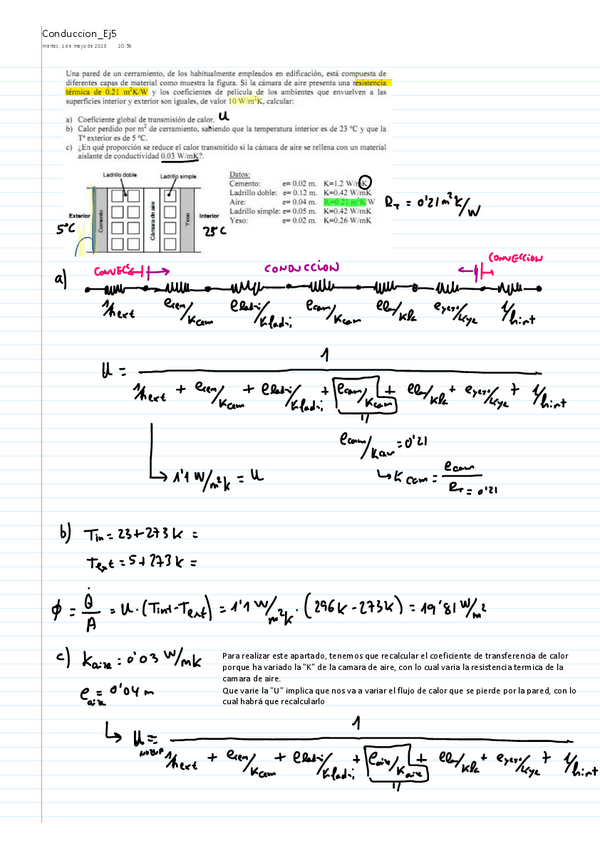 Conduccion_Ej5
martes, 1 de mayo de 2018 20:56
Una pared de un cerramiento, de los habitualmente empleados en edificación, está compuesta de
diferentes capas de material como muestra la figura. Si la cámara de aire presenta una resistencia
térmica de 0.21 m²K/W y los coeficientes de película de los ambientes que envuelven a las
superficies interior y exterior son iguales, de valor 10 W/m²K, calcular:
a) Coeficiente global de transmisión de calor. U
b) Calor perdido por m² de cerramiento, sabiendo que la temperatura interior es de 23 ºC y que la
Tª exterior es de 5 ºC.
c) ¿En qué proporción se reduce el calor transmitido si la cámara de aire se rellena con un material
aislante de conductividad 0.03 W/mK?.
Ladrillo doble Ladrillo simple
Exterior Cemento Cámara de aire Yeso Interior
5ºC 23ºC
Datos:
Cemento: e= 0.02 m. K=1.2 W/mK
Ladrillo doble: e= 0.12 m. K=0.42 W/mK
Aire: e= 0.04 m. R=0.21 m²K/W RT = 0'21 m²K/W
Ladrillo simple: e= 0.05 m. K=0.42 W/mK
Yeso: e= 0.02 m. K=0.26 W/mK
a) CONVEC CONDUCCION CONVECCION
1/hext ecem/Kcem eladi/Kladi ecam/Kcam ela/Kla eyeso/Kye 1/hint
U = 1
1/hext + ecem/Kcem + eladi/Kladi + ecam/Kcam + ela/Kla + eyeso/Kye + 1/hint
ecam/Kcam = 0'21
1'1 W/m²K = U
Kcam = ecam
RT = 0'21
b) Tin = 23 + 273 K =
Text = 5 + 273 K =
ϕ = Q̇/A = U · (Tint - Text) = 1'1 W/m²K · (296K - 273K) = 19'81 W/m²
c) Kaire : 0'03 W/mK
eaire = 0'04 m
Para realizar este apartado, tenemos que recalcular el coeficiente de transferencia de calor
porque ha variado la "K" de la camara de aire, con lo cual varia la resistencia termica de la
camara de aire.
Que varie la "U" implica que nos va a variar el flujo de calor que se pierde por la pared, con lo
cual habrá que recalcularlo
U = 1
1/hext + ecem/Kcem + eladi/Kladi + eaire/Kaire + ela/Kla + eyeso/Kye + 1/hint